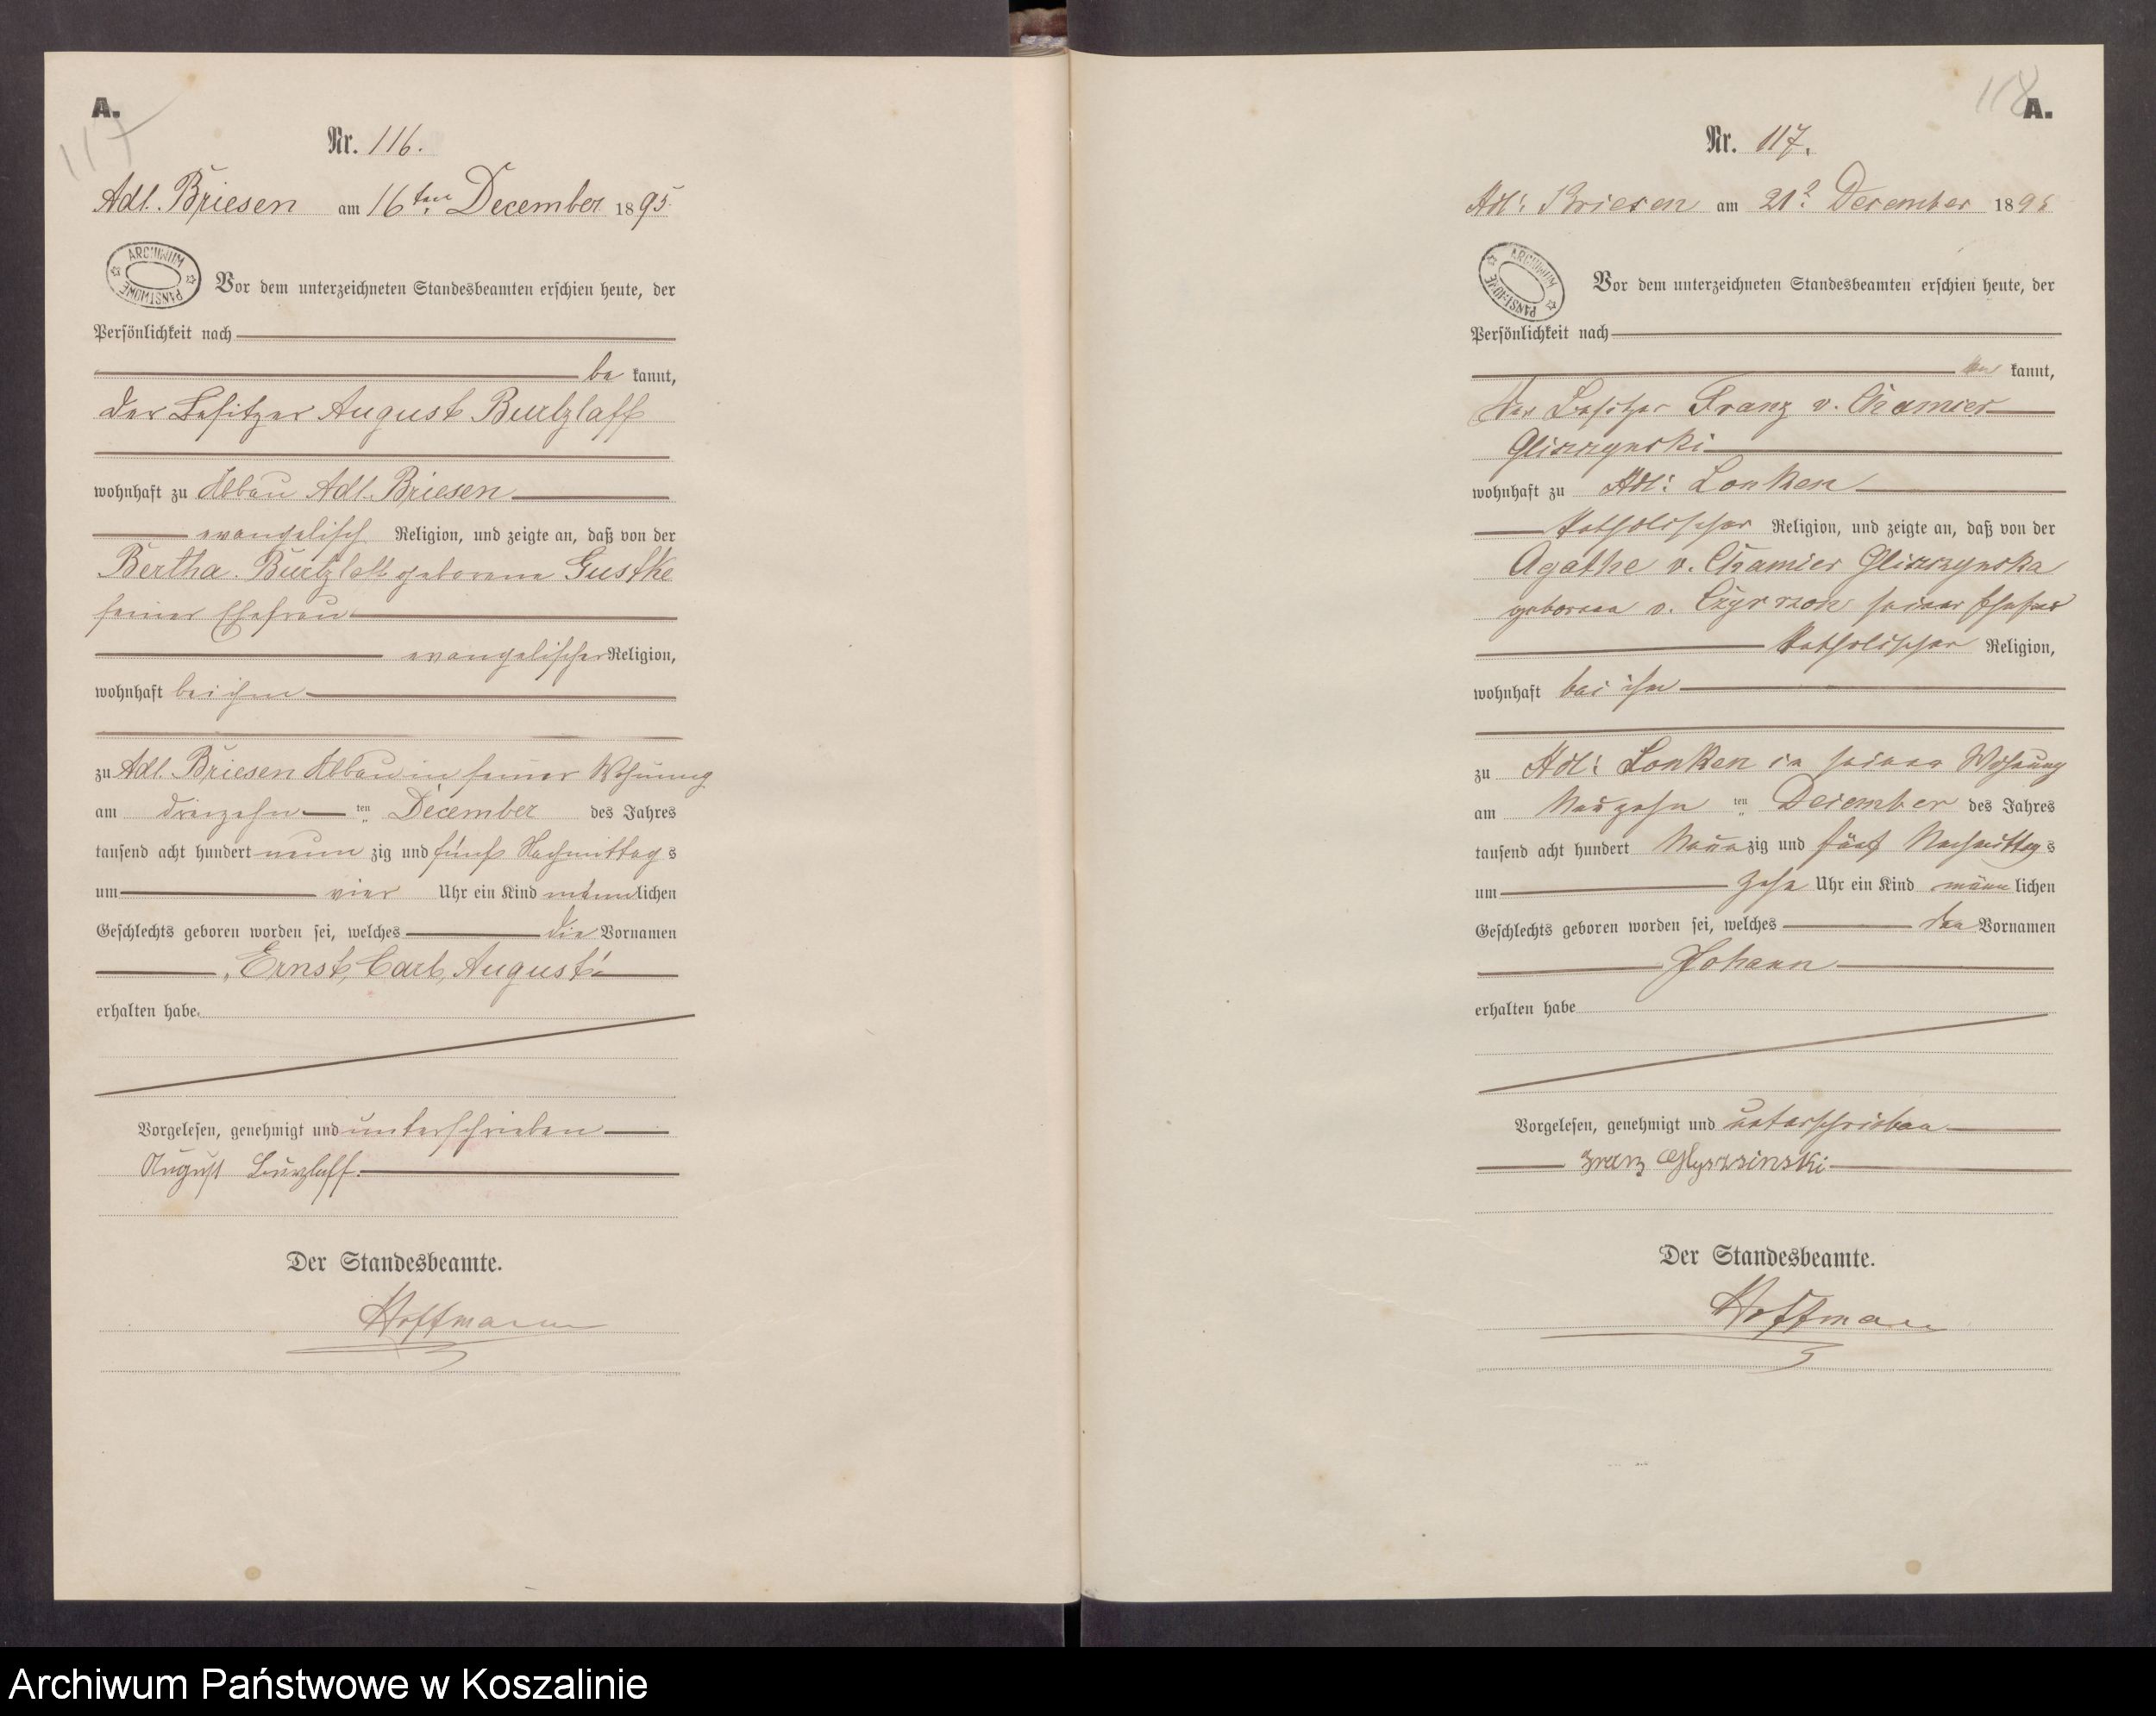 A.
117
Nr. 116.
Adl. Briesen am 16ten December 1895.
ARCHIWUM PAŃSTWOWE
Vor dem unterzeichneten Standesbeamten erschien heute, der
Persönlichkeit nach
be kannt,
der Besitzer August Burtzlaff
wohnhaft zu Abbau Adl. Briesen
evangelisch Religion, und zeigte an, daß von der
Bertha Burtzlaff geborene Gustke
seiner Ehefrau
evangelischer Religion,
wohnhaft bei ihm
zu Adl. Briesen Abbau in seiner Wohnung
am dreizehn ten December des Jahres
tausend acht hundert neun zig und fünf Nachmittag s
um vier Uhr ein Kind männlichen
Geschlechts geboren worden sei, welches die Vornamen
„Ernst, Carl, August"
erhalten habe.
Vorgelesen, genehmigt und unterschrieben
August Burzlaff.
Der Standesbeamte.
Hoffmann
118
A.
Nr. 117.
Adl: Briesen am 21t December 1895
ARCHIWUM PAŃSTWOWE
Vor dem unterzeichneten Standesbeamten erschien heute, der
Persönlichkeit nach
kannt,
der Besitzer Franz v. Chamier
Gliszzynski
wohnhaft zu Adl: Lonken
katholischer Religion, und zeigte an, daß von der
Agathe v. Chamier Gliszzynska
geborene v. seiner Ehefrau
katholischer Religion,
wohnhaft bei ihm
zu Adl: Lonken in seiner Wohnung
am Neunzehn ten December des Jahres
tausend acht hundert Neun zig und fünf Nachmittag s
um zehn Uhr ein Kind männ lichen
Geschlechts geboren worden sei, welches den Vornamen
Johann
erhalten habe
Vorgelesen, genehmigt und unterschrieben
Franz Glyszsinski
Der Standesbeamte.
Hoffmann
Archiwum Państwowe w Koszalinie